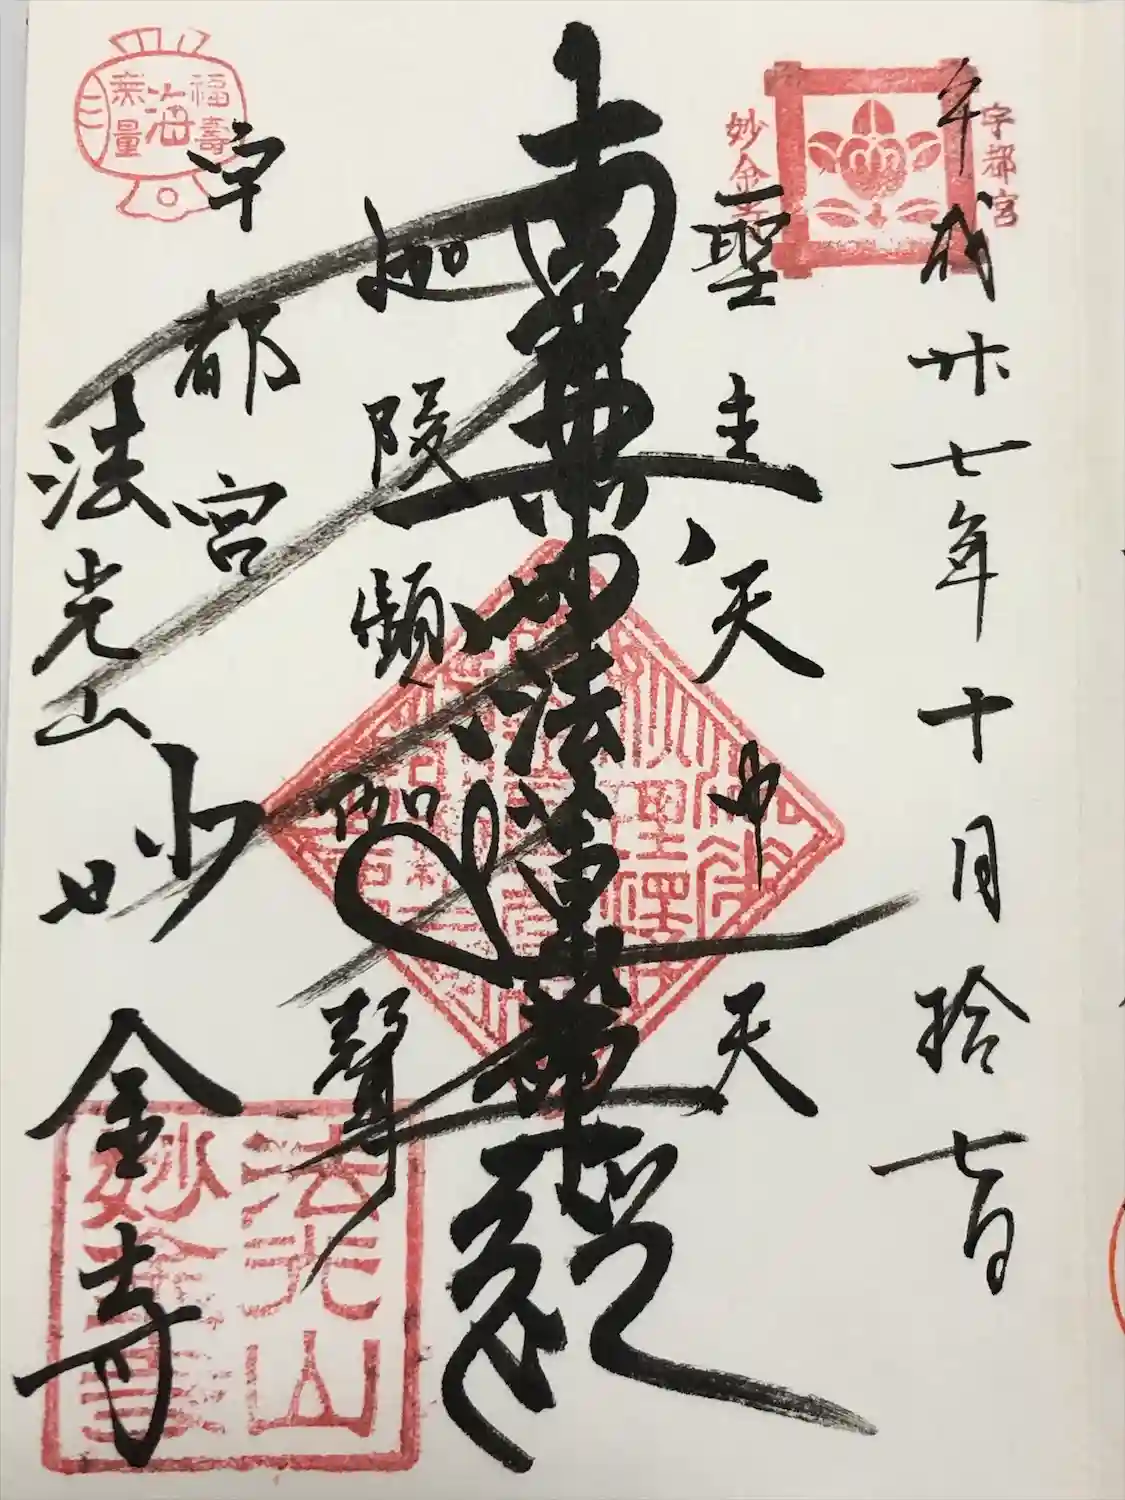 宇都宮
妙金寺
平成廿七年十月拾七日
聖主天中天
南無妙法蓮華経
迦陵頻伽聲
宇都宮
法光山
妙金寺
福壽
海
無量
法光山
妙金寺